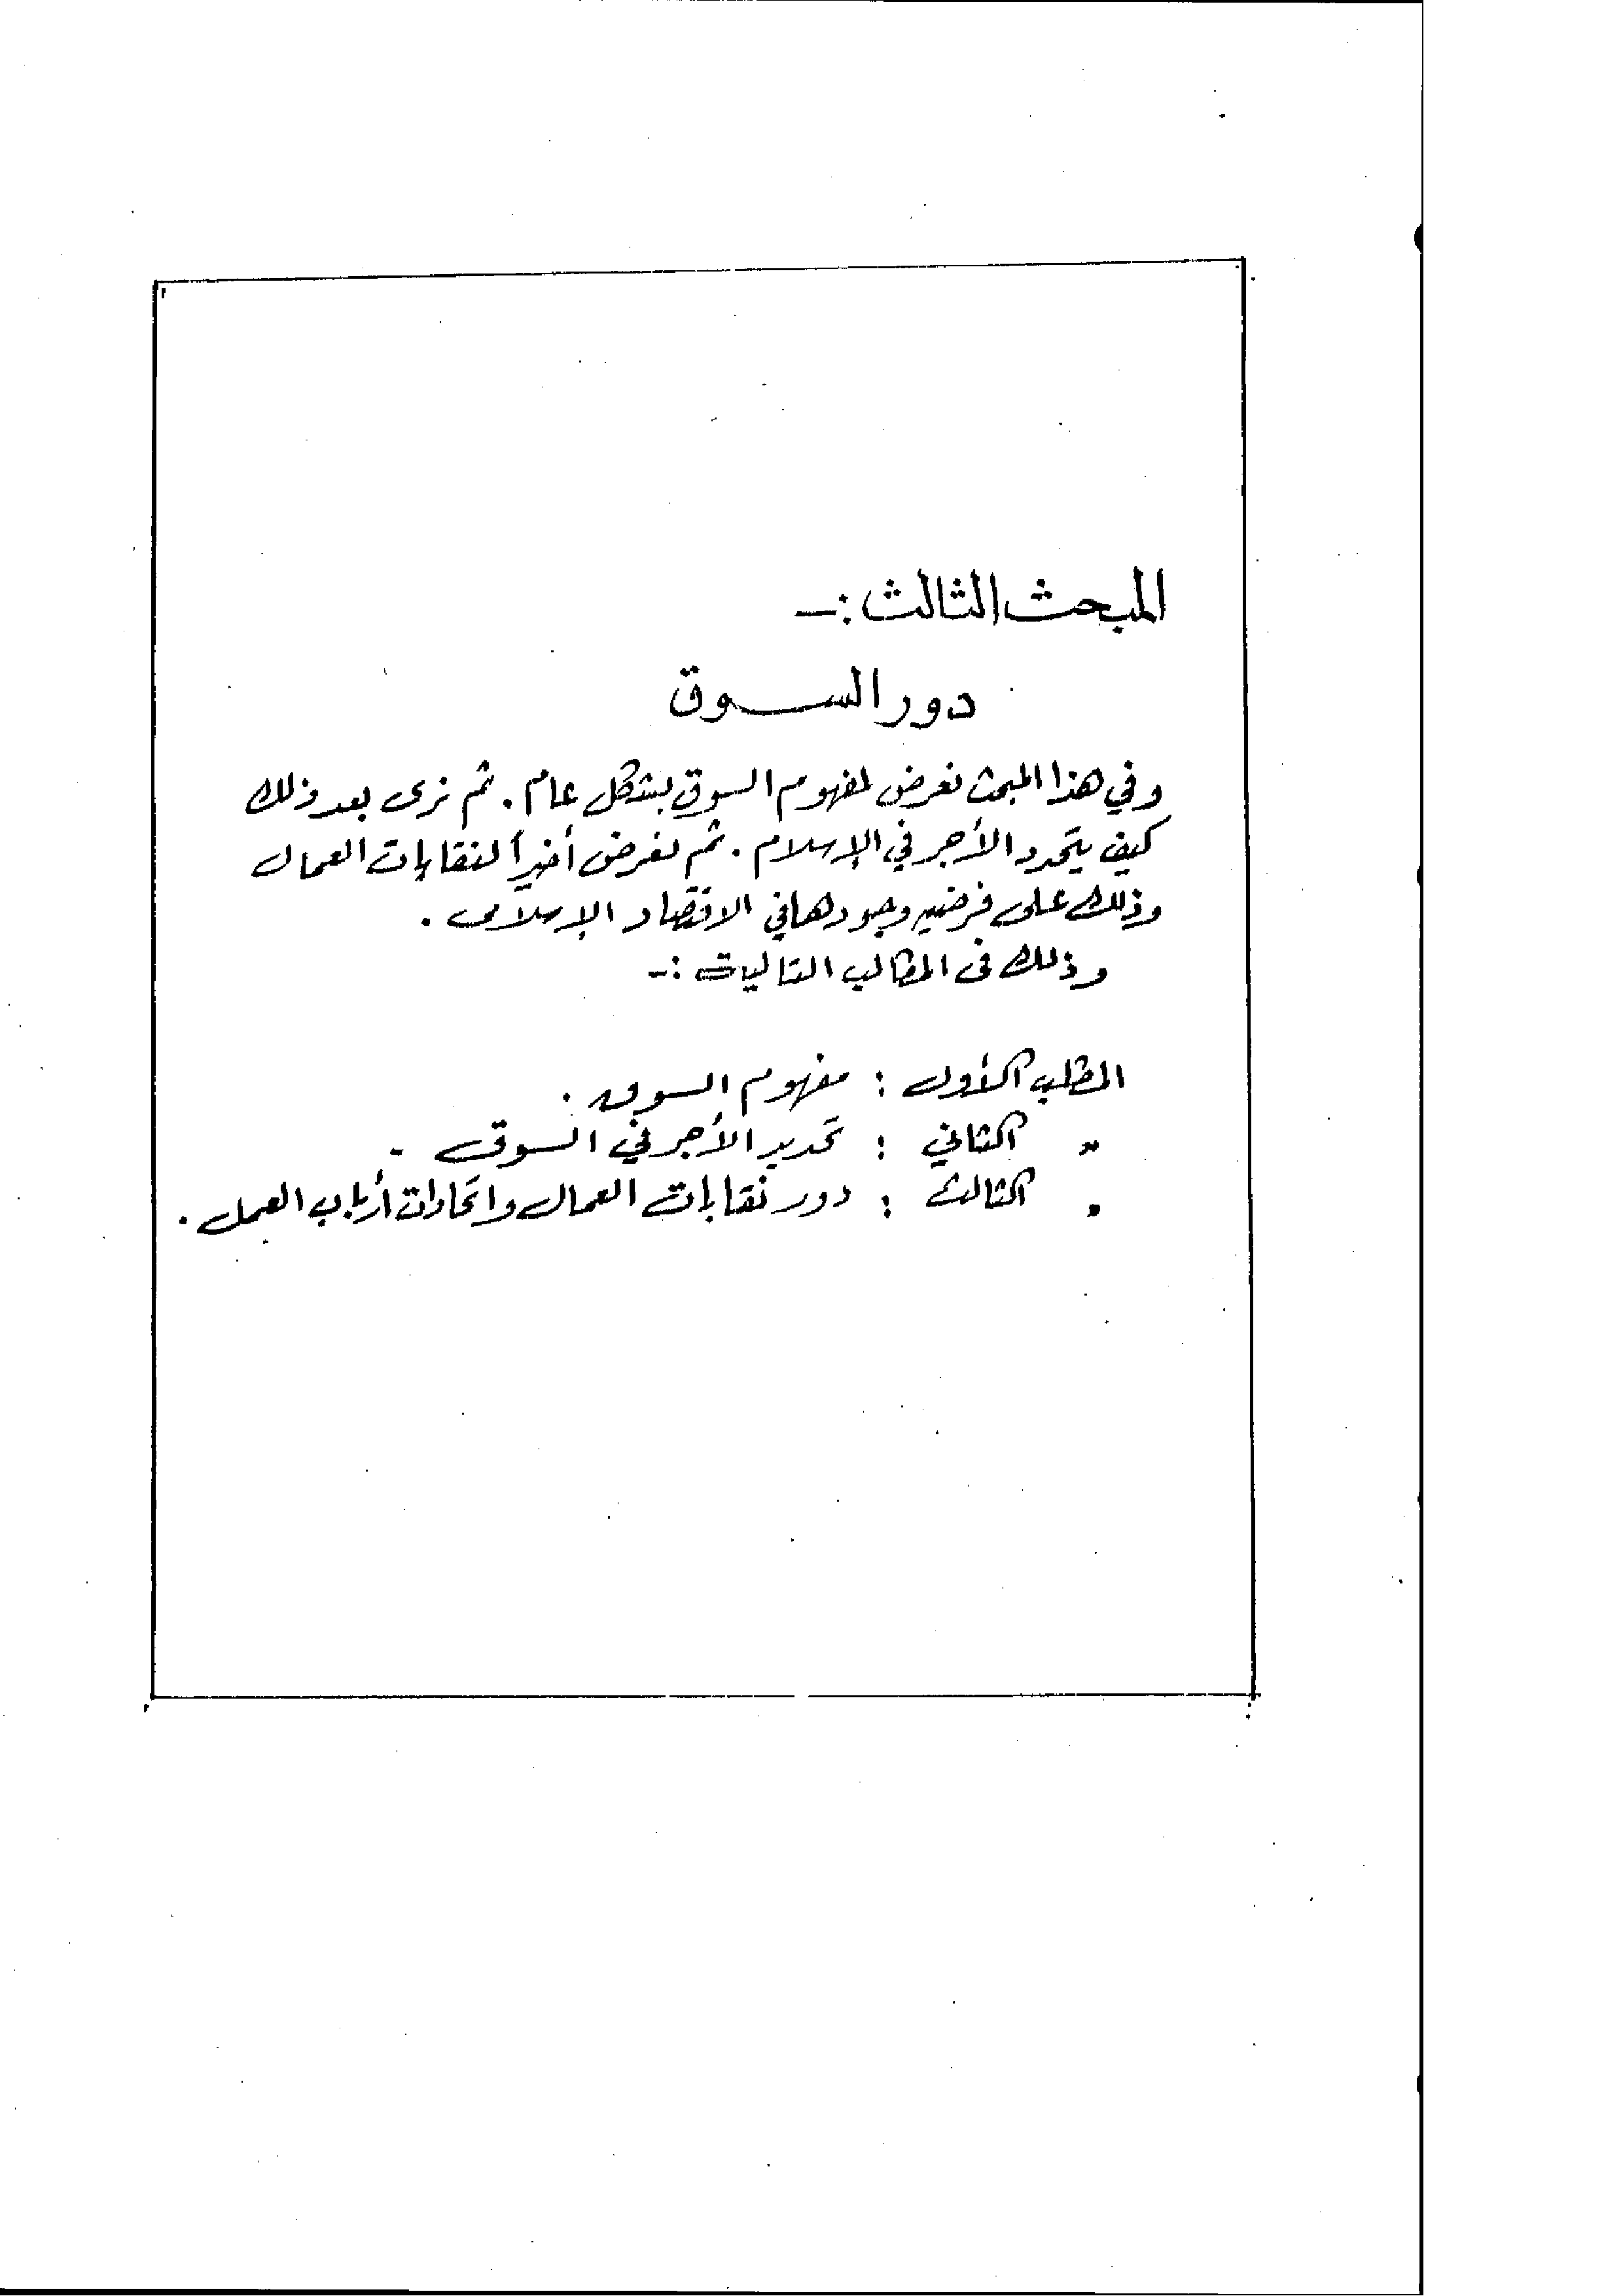 المبحث الثالث :-
دور السوق
وفي هذا المبحث نعرض لمفهوم السوق بشكل عام . ثم نرى بعد ذلك
كيف يتحدد الأجر في الإسلام . ثم نعرض أخيراً لنقابات العمال
وذلك على فرضيه وجودها في الاقتصاد الإسلامى .
وذلك فى المطالب التاليات :-
المطلب الأول : مفهوم السوق .
" الثاني : تحديد الأجر في السوق .
" الثالث : دور نقابات العمال واتحادات أرباب العمل .